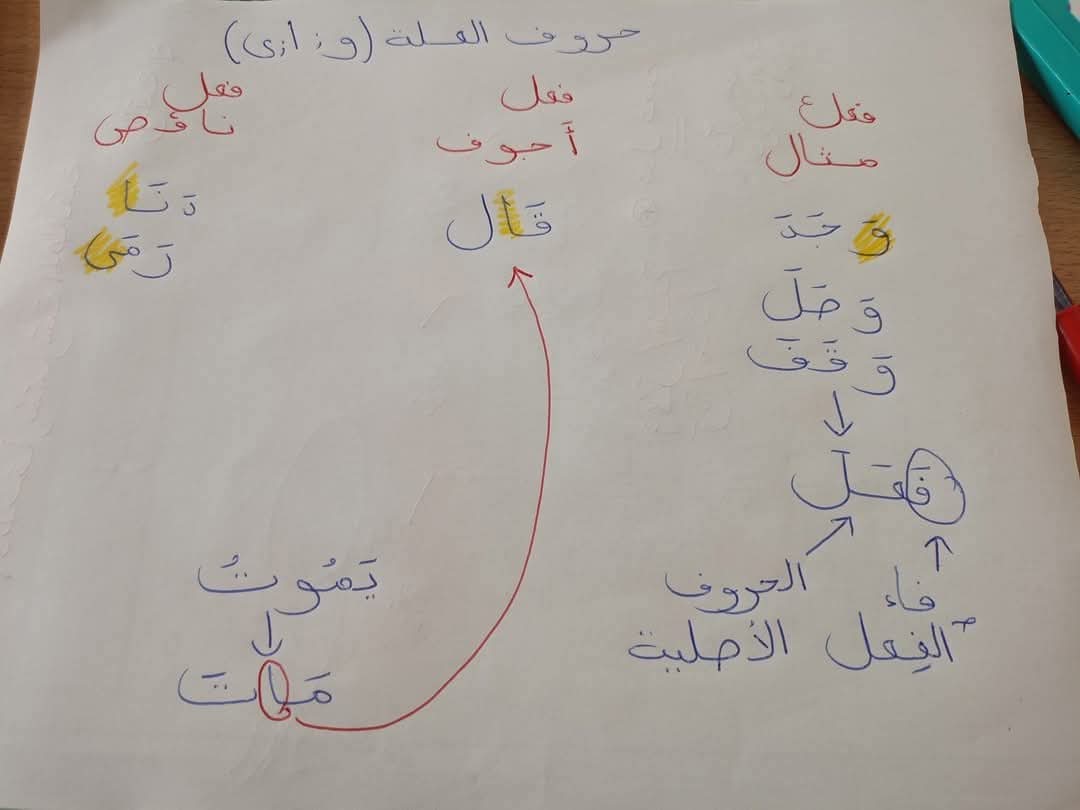 حروف العلة (و، ا، ى)
فعل
مثال
وَجَدَ
وَصَلَ
وَقَفَ
فَعَلَ
فاء
الفِعل
الحروف
الأصلية
فعل
أجوف
قَال
فعل
ناقص
دَنَا
رَمَى
يَمُوتُ
مَاتَ